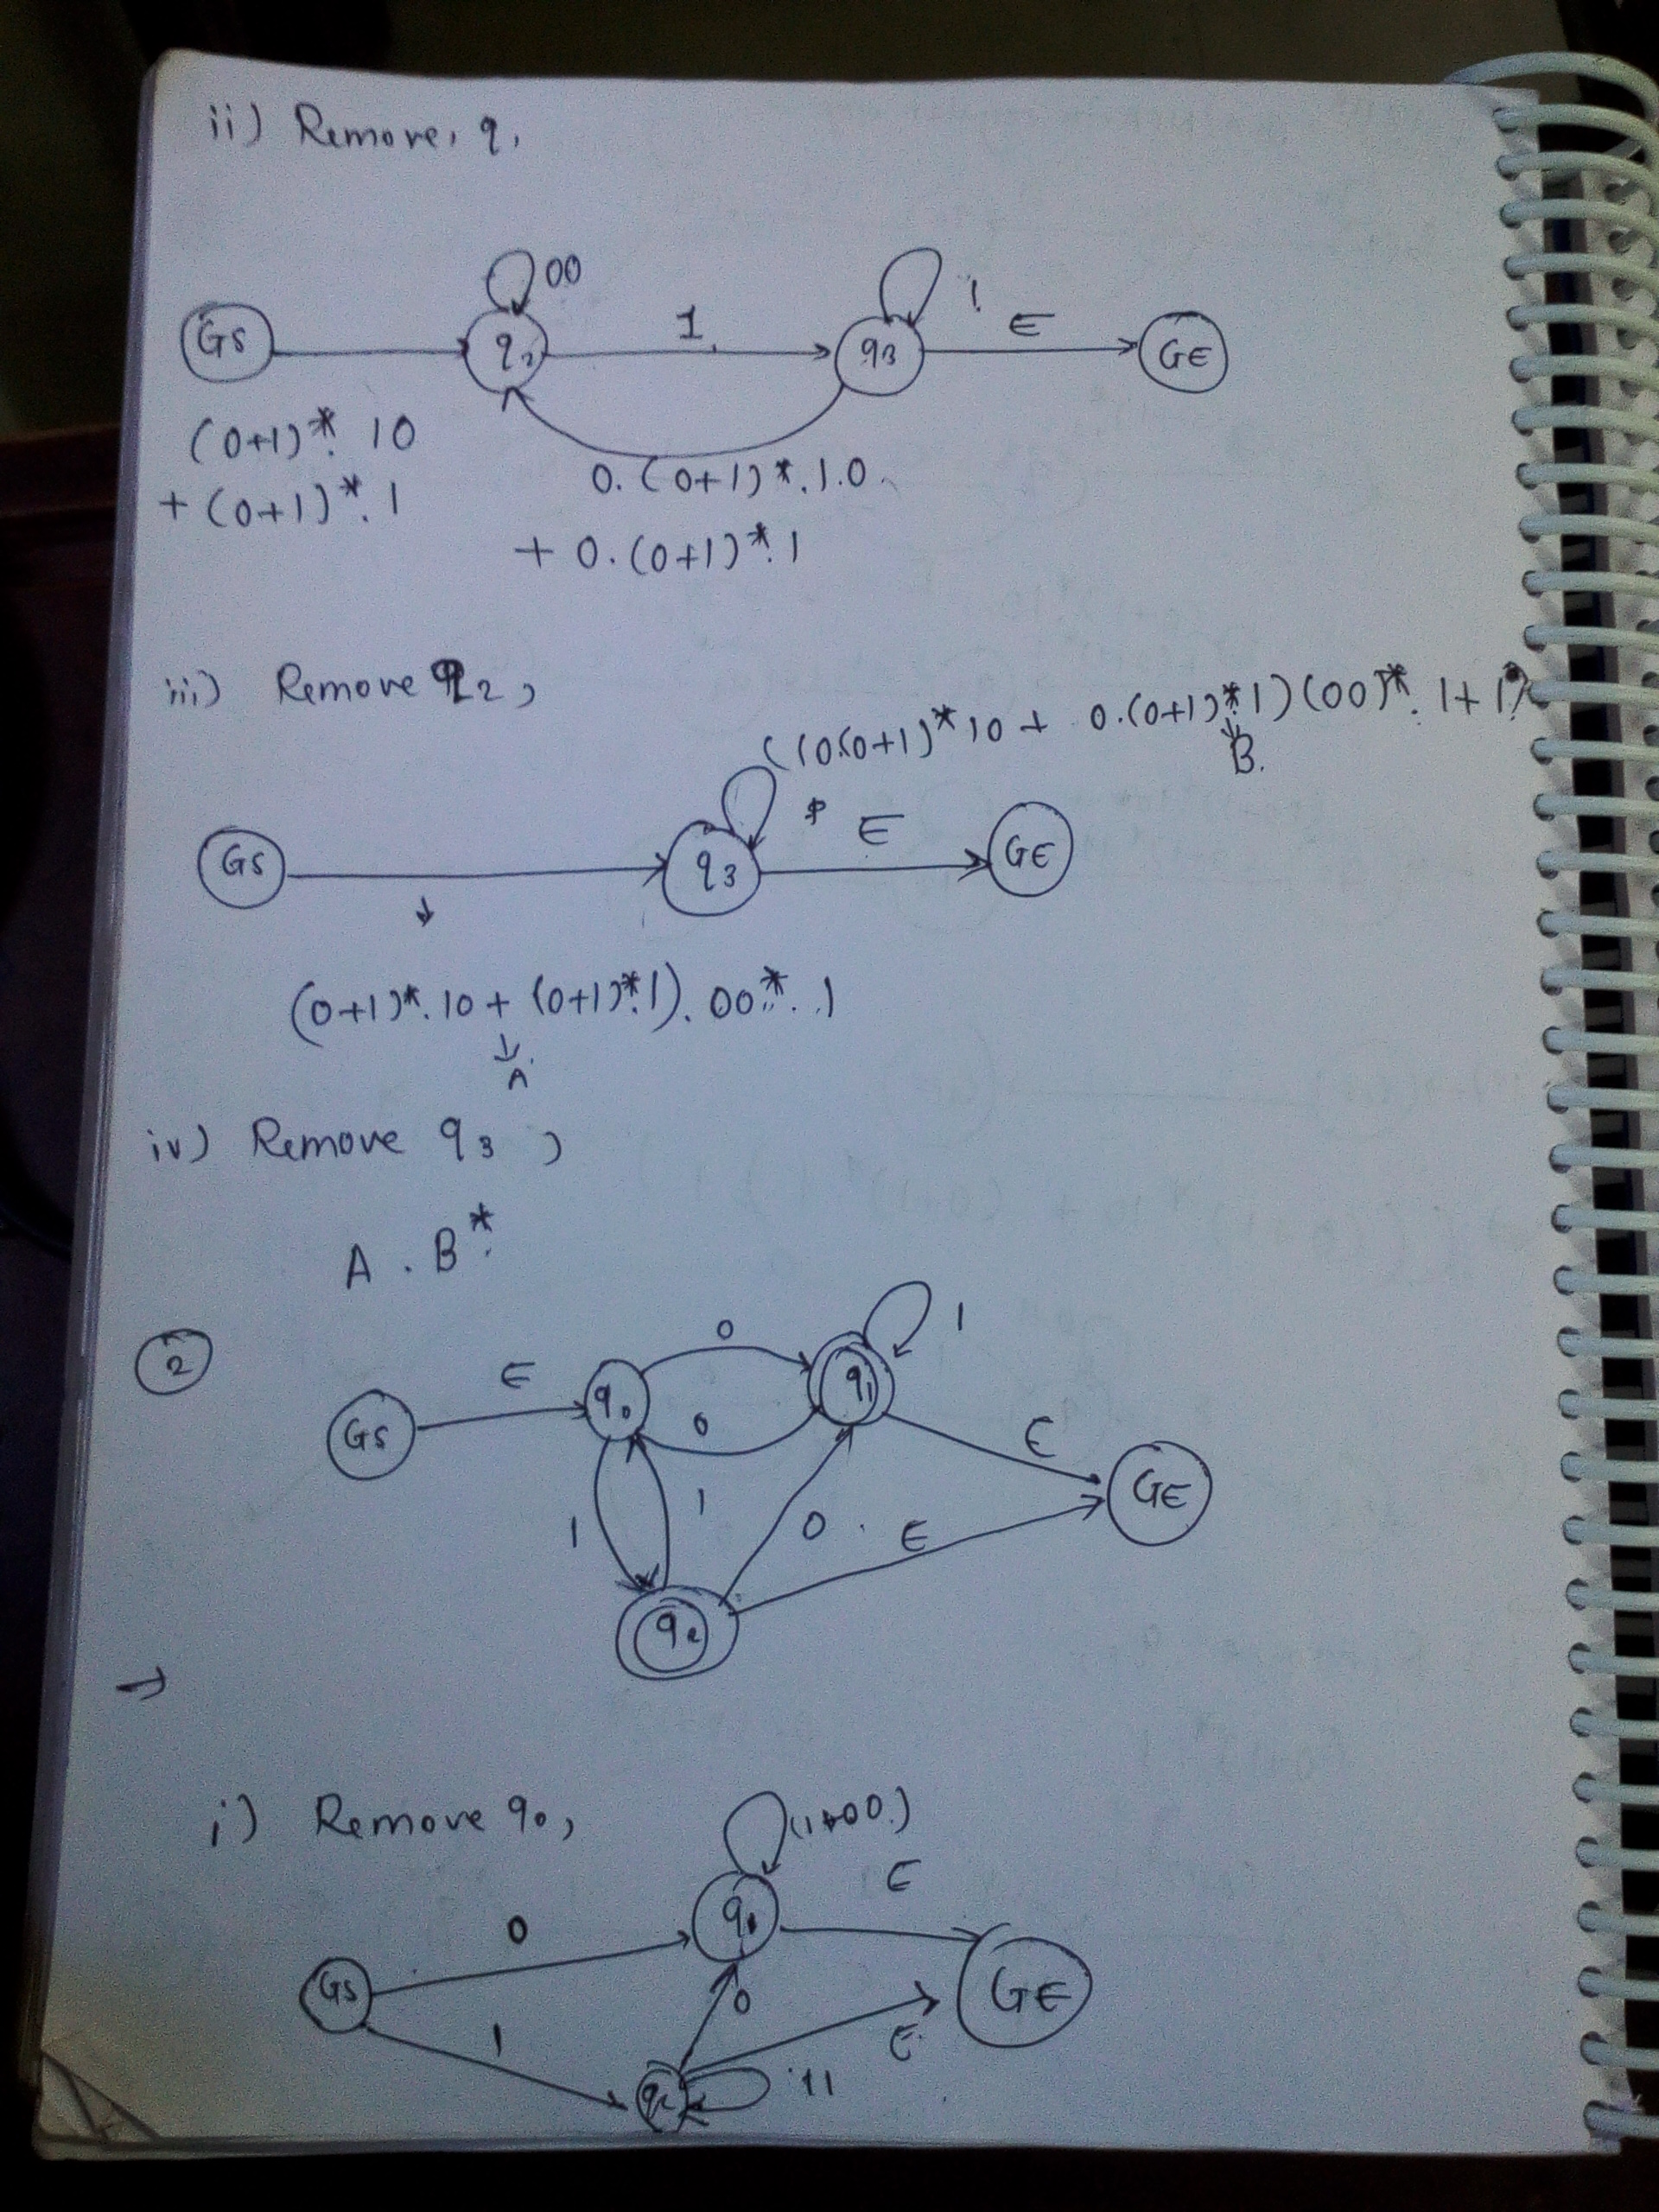 ii) Remove, q1
00
1
1
Gs
q2
1.
q3
∈
GE
(0+1)*. 10
+ (0+1)*. 1
0. (0+1)*. 1.0.
+ 0. (0+1)*. 1
iii) Remove q2,
((0.(0+1)*10 + 0.(0+1)*.1)(00)*. 1+1)
B.
Gs
q3
∈
GE
(0+1)*. 10 + (0+1)*.1). 00*. 1
A
iv) Remove q3,
A . B*
2
0
1
∈
Gs
q0
q1
0
∈
GE
1
1
0
∈
q2
i) Remove q0,
(1+00)
∈
0
q1
Gs
GE
0
1
∈
q2
11